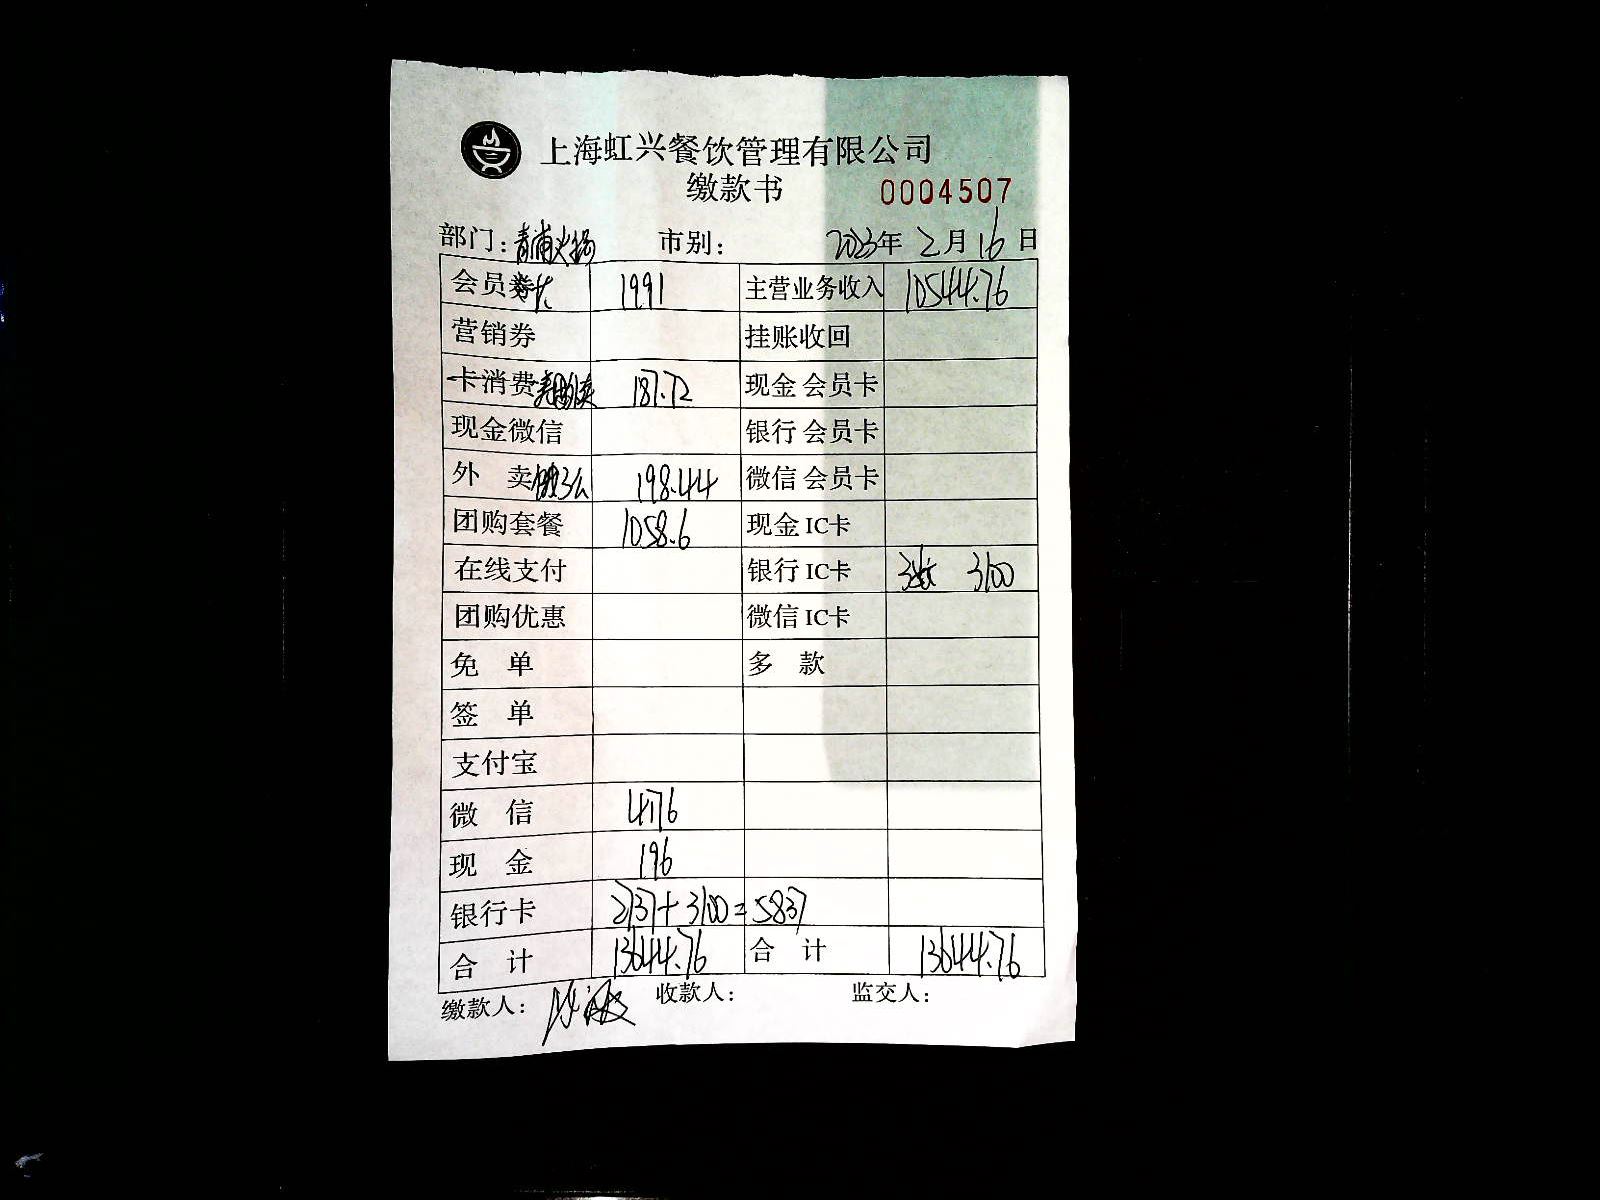 上海虹兴餐饮管理有限公司
缴款书 0004507
部门：青浦 市别： 2023年 2月 16日
会员 1991 主营业务收入 10544.76
营销券 挂账收回
卡消费 187.72 现金会员卡
现金微信 银行会员卡
外 卖 198.44 微信会员卡
团购套餐 1058.6 现金IC卡
在线支付 银行IC卡 3张 3100
团购优惠 微信IC卡
免 单 多 款
签 单
支付宝
微 信 4176
现 金 196
银行卡 2737+3100=5837
合 计 13644.76 合 计 13644.76
缴款人： 收款人： 监交人：